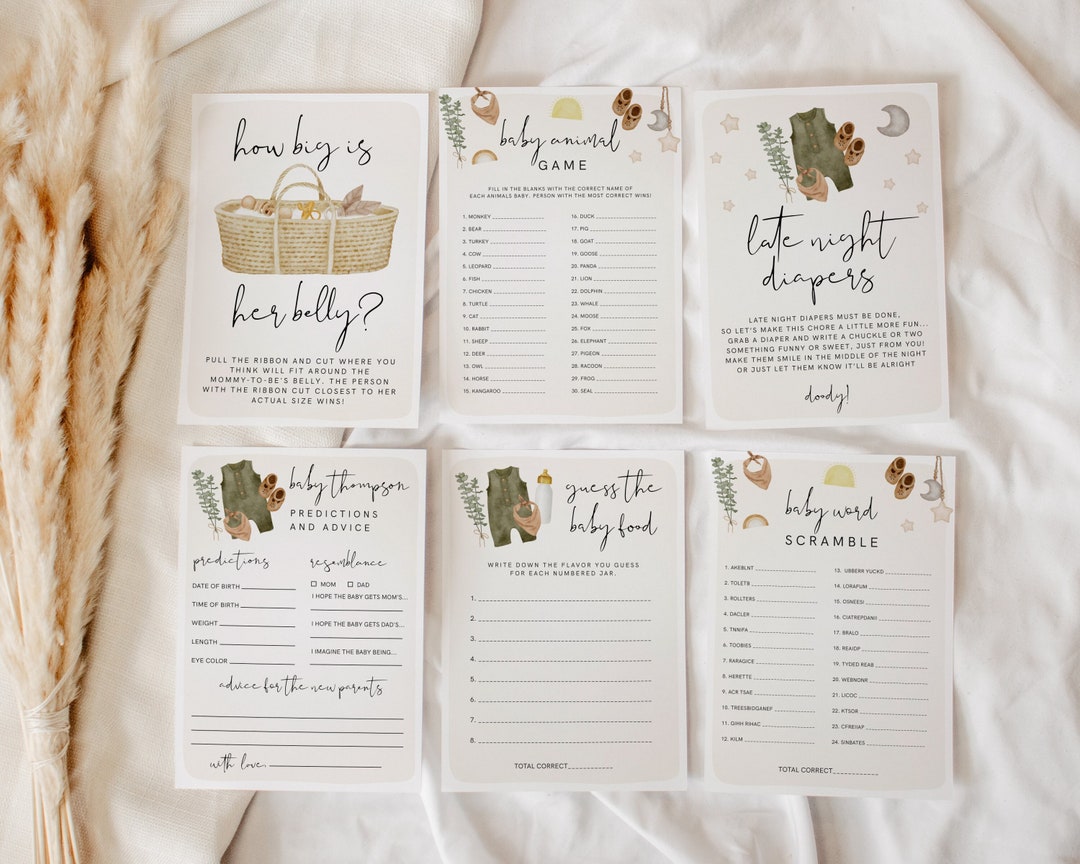 how big is
her belly?
PULL THE RIBBON AND CUT WHERE YOU
THINK WILL FIT AROUND THE
MOMMY-TO-BE'S BELLY. THE PERSON
WITH THE RIBBON CUT CLOSEST TO HER
ACTUAL SIZE WINS!
baby animal
GAME
FILL IN THE BLANKS WITH THE CORRECT NAME OF
EACH ANIMALS BABY. PERSON WITH THE MOST CORRECT WINS!
1. MONKEY
2. BEAR
3. TURKEY
4. COW
5. LEOPARD
6. FISH
7. CHICKEN
8. TURTLE
9. CAT
10. RABBIT
11. SHEEP
12. DEER
13. OWL
14. HORSE
15. KANGAROO
16. DUCK
17. PIG
18. GOAT
19. GOOSE
20. PANDA
21. LION
22. DOLPHIN
23. WHALE
24. MOOSE
25. FOX
26. ELEPHANT
27. PIGEON
28. RACOON
29. FROG
30. SEAL
late night
diapers
LATE NIGHT DIAPERS MUST BE DONE,
SO LET'S MAKE THIS CHORE A LITTLE MORE FUN...
GRAB A DIAPER AND WRITE A CHUCKLE OR TWO
SOMETHING FUNNY OR SWEET, JUST FROM YOU!
MAKE THEM SMILE IN THE MIDDLE OF THE NIGHT
OR JUST LET THEM KNOW IT'LL BE ALRIGHT
doody!
baby thompson
PREDICTIONS
AND ADVICE
predictions
DATE OF BIRTH
TIME OF BIRTH
WEIGHT
LENGTH
EYE COLOR
resemblance
MOM DAD
I HOPE THE BABY GETS MOM'S...
I HOPE THE BABY GETS DAD'S...
I IMAGINE THE BABY BEING...
advice for the new parents
with love,
guess the
baby food
WRITE DOWN THE FLAVOR YOU GUESS
FOR EACH NUMBERED JAR.
1.
2.
3.
4.
5.
6.
7.
8.
TOTAL CORRECT
baby word
SCRAMBLE
1. AKEBLNT
2. TOLETB
3. ROLLTERS
4. DACLER
5. TNNIFA
6. TOOBIES
7. RARAGICE
8. HERETTE
9. ACR TSAE
10. TREESBIOGANEP
11. GIHH RIHAC
12. KILM
13. UBBERR YUCKD
14. LORAFUM
15. OSNEESI
16. CIATREPDANII
17. BRALO
18. REAIDP
19. TYDED REAB
20. WEBNONR
21. LICOC
22. KTSOR
23. CFREIIAP
24. SINBATES
TOTAL CORRECT